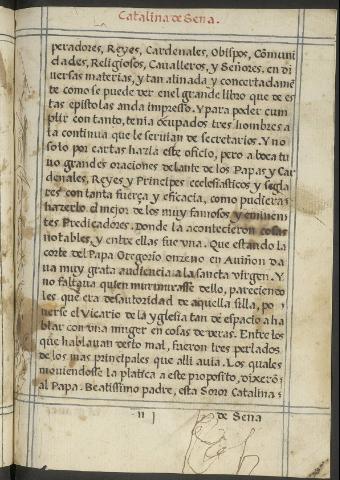 Catalina de Sena.
peradores, Reyes, Cardenales, Obispos, Cõmuni
dades, Religiosos, Caualleros, y Señores, en di
uersas materias, y tan atinada y concertadamẽ
te como se puede ver en el grande libro que de es
tas epistolas anda impresso. Y para poder cum
plir con tanto, tenia ocupados tres hombres a
la continua que le seruian de secretarios. Y no
solo por cartas hazia este oficio, pero a boca tu
uo grandes oraciones delante de los Papas y Car
denales, Reyes y Principes ecclesiasticos y segla
res con tanta fuerça y eficacia, como pudiera
hazerlo el mejor de los muy famosos y eminen
tes Predicadores. Donde la acontecieron cosas
notables, y entre ellas fue vna. Que estando la
corte del Papa Gregorio onzeno en Auiñon da
ua muy grata audiencia a la sancta virgen. Y
no faltaua quien murmurasse dello, pareciendo
les que era desautoridad de aquella silla, po
nerse el Vicario de la yglesia tan de espacio a ha
blar con vna muger en cosas de veras. Entre los
que hablauan desto mal, fueron tres perlados
de los mas principales que alli auia. Los quales
mouiendosse la platica a este proposito, dixerõ
al Papa. Beatissimo padre, esta Soror Catalina
11 de Sena